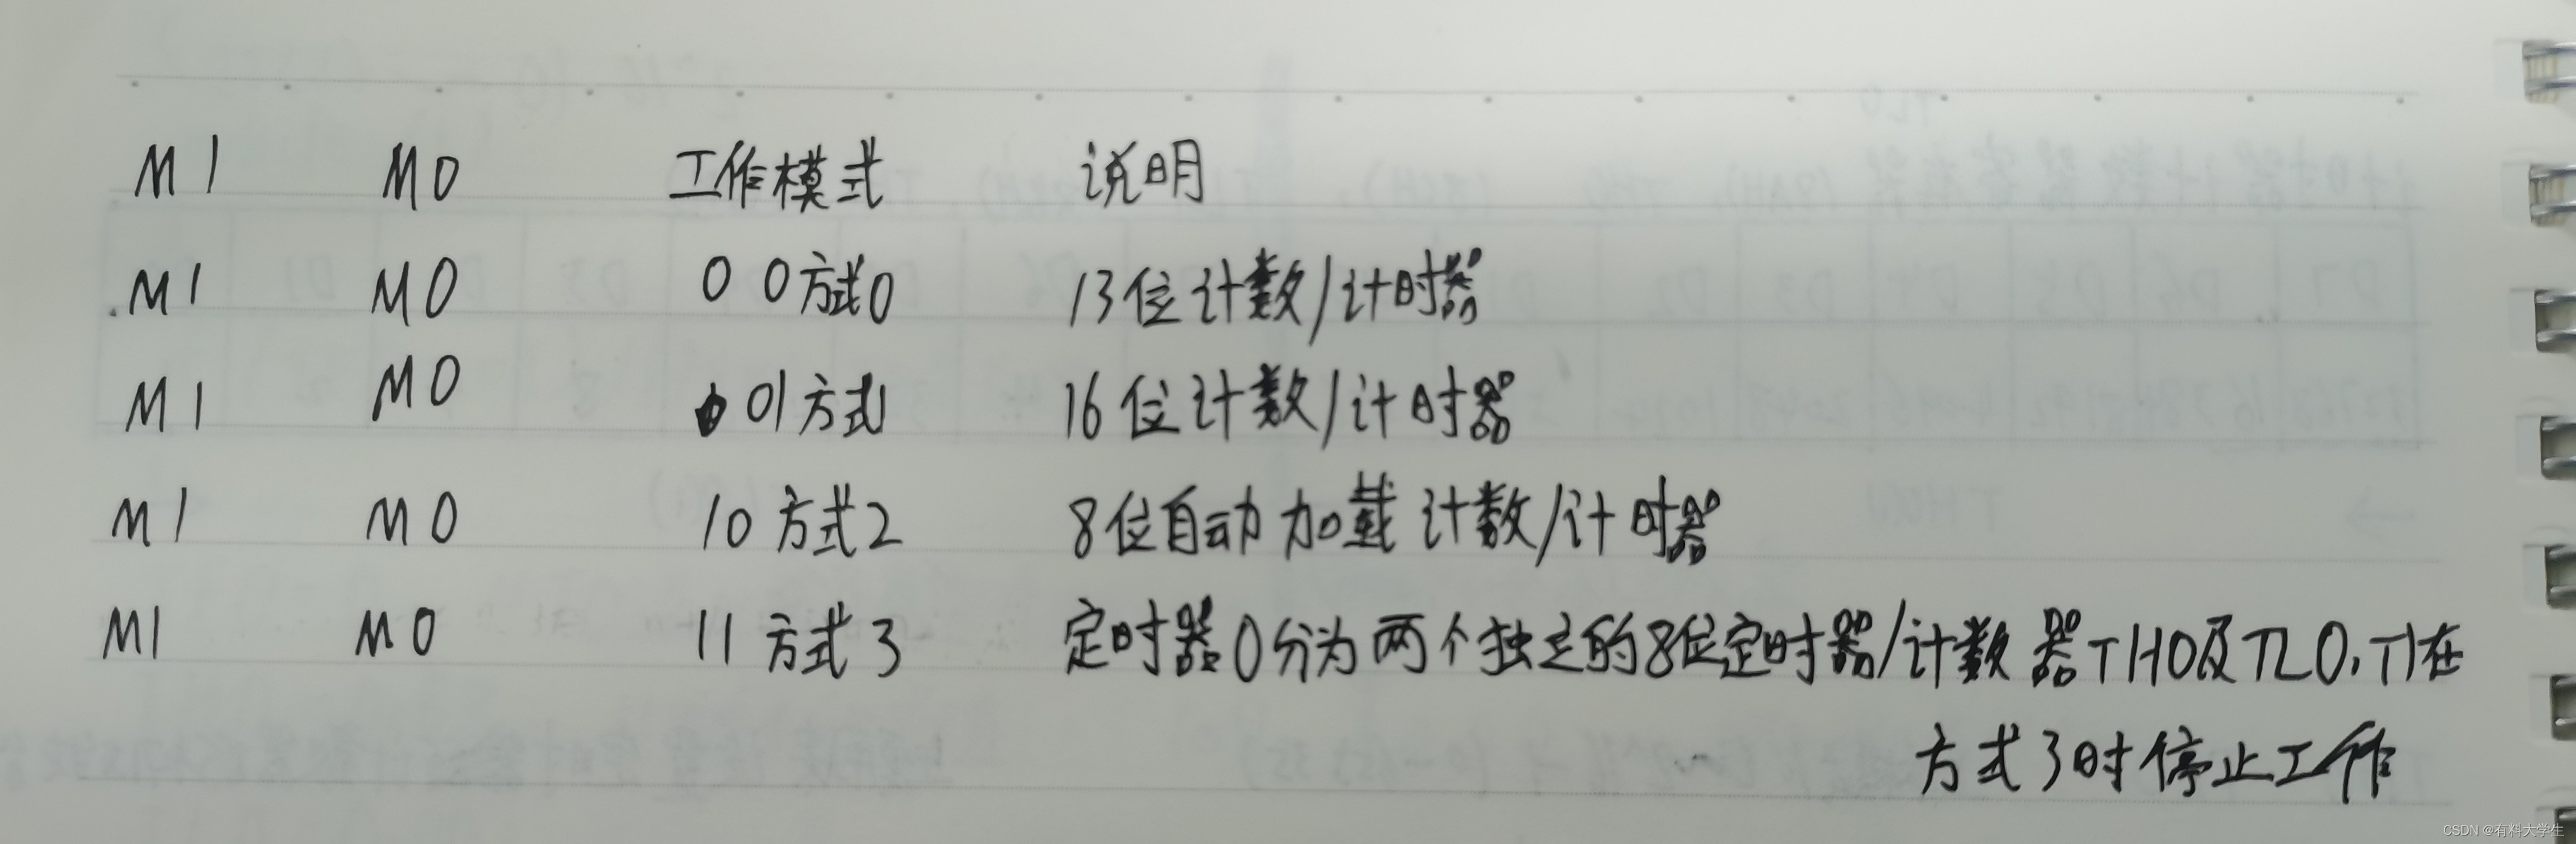 M1 M0 工作模式 说明
M1 M0 0 0方式0 13位计数/计时器
M1 M0 01方式1 16位计数/计时器
M1 M0 10方式2 8位自动加载计数/计时器
M1 M0 11方式3 定时器0分为两个独立的8位定时器/计数器TH0及TL0,T1在
方式3时停止工作
CSDN @有料大学生